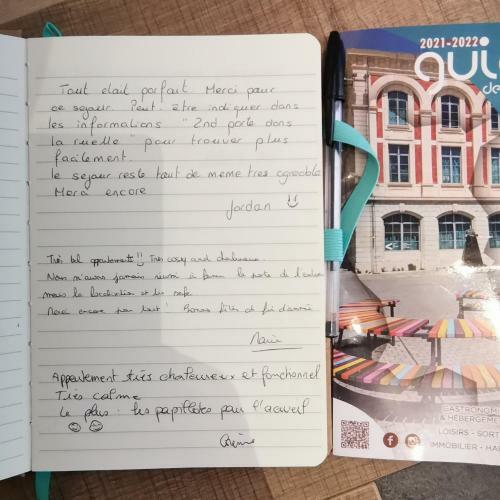 Tout etait parfait. Merci pour
ce sejour. Peut etre indiquer dans
les informations "2nd porte dans
la ruelle" pour trouver plus
facilement.
le sejour reste tout de meme tres agreable
Merci encore
Jordan
Très bel appartement!! Très cosy and chaleureux.
Nous n'avons jamais réussi à fermer la porte de l'entrée
mais la localisation est très safe.
Merci encore pour tout! Bonnes fêtes et fin d'année
Marie
Appartement très chaleureux et fonctionnel
Très calme
Le plus: les papillotes pour l'accueil
2021-2022
gui
de
GASTRONOMI
& HÉBERGEME
LOISIRS - SORT
IMMOBILIER - HA